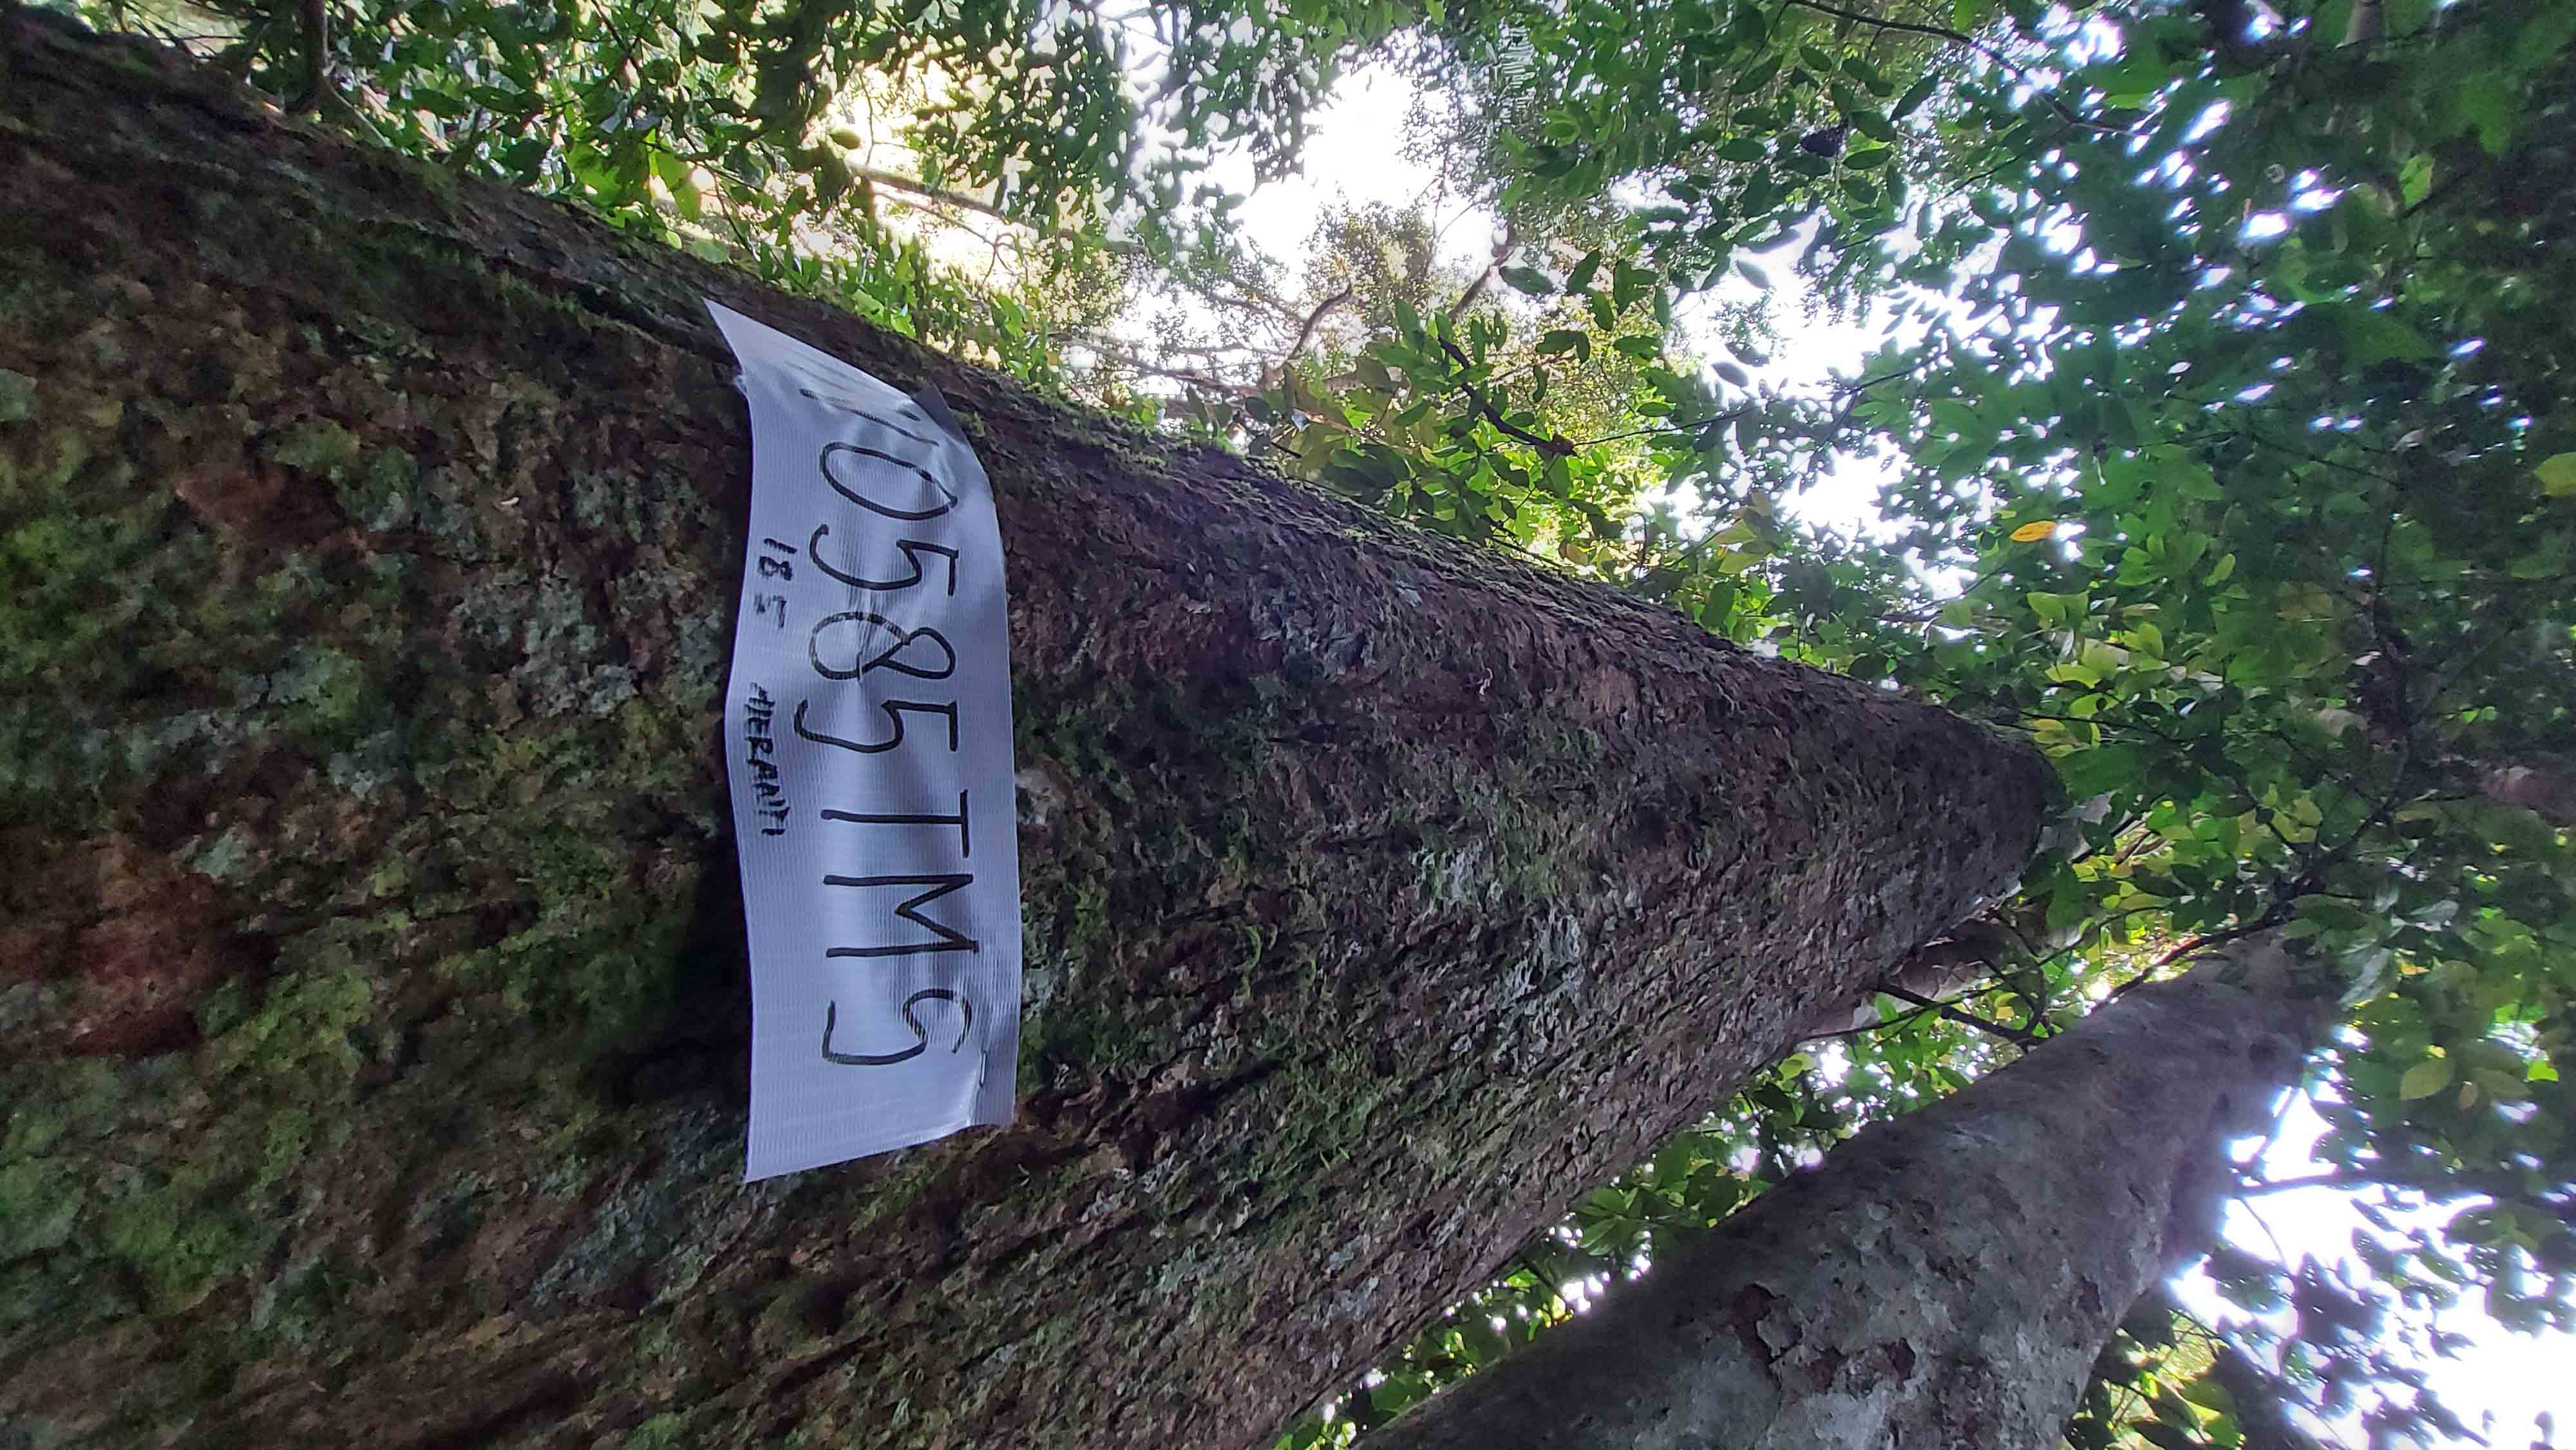 10585TMS
185 MERANTI